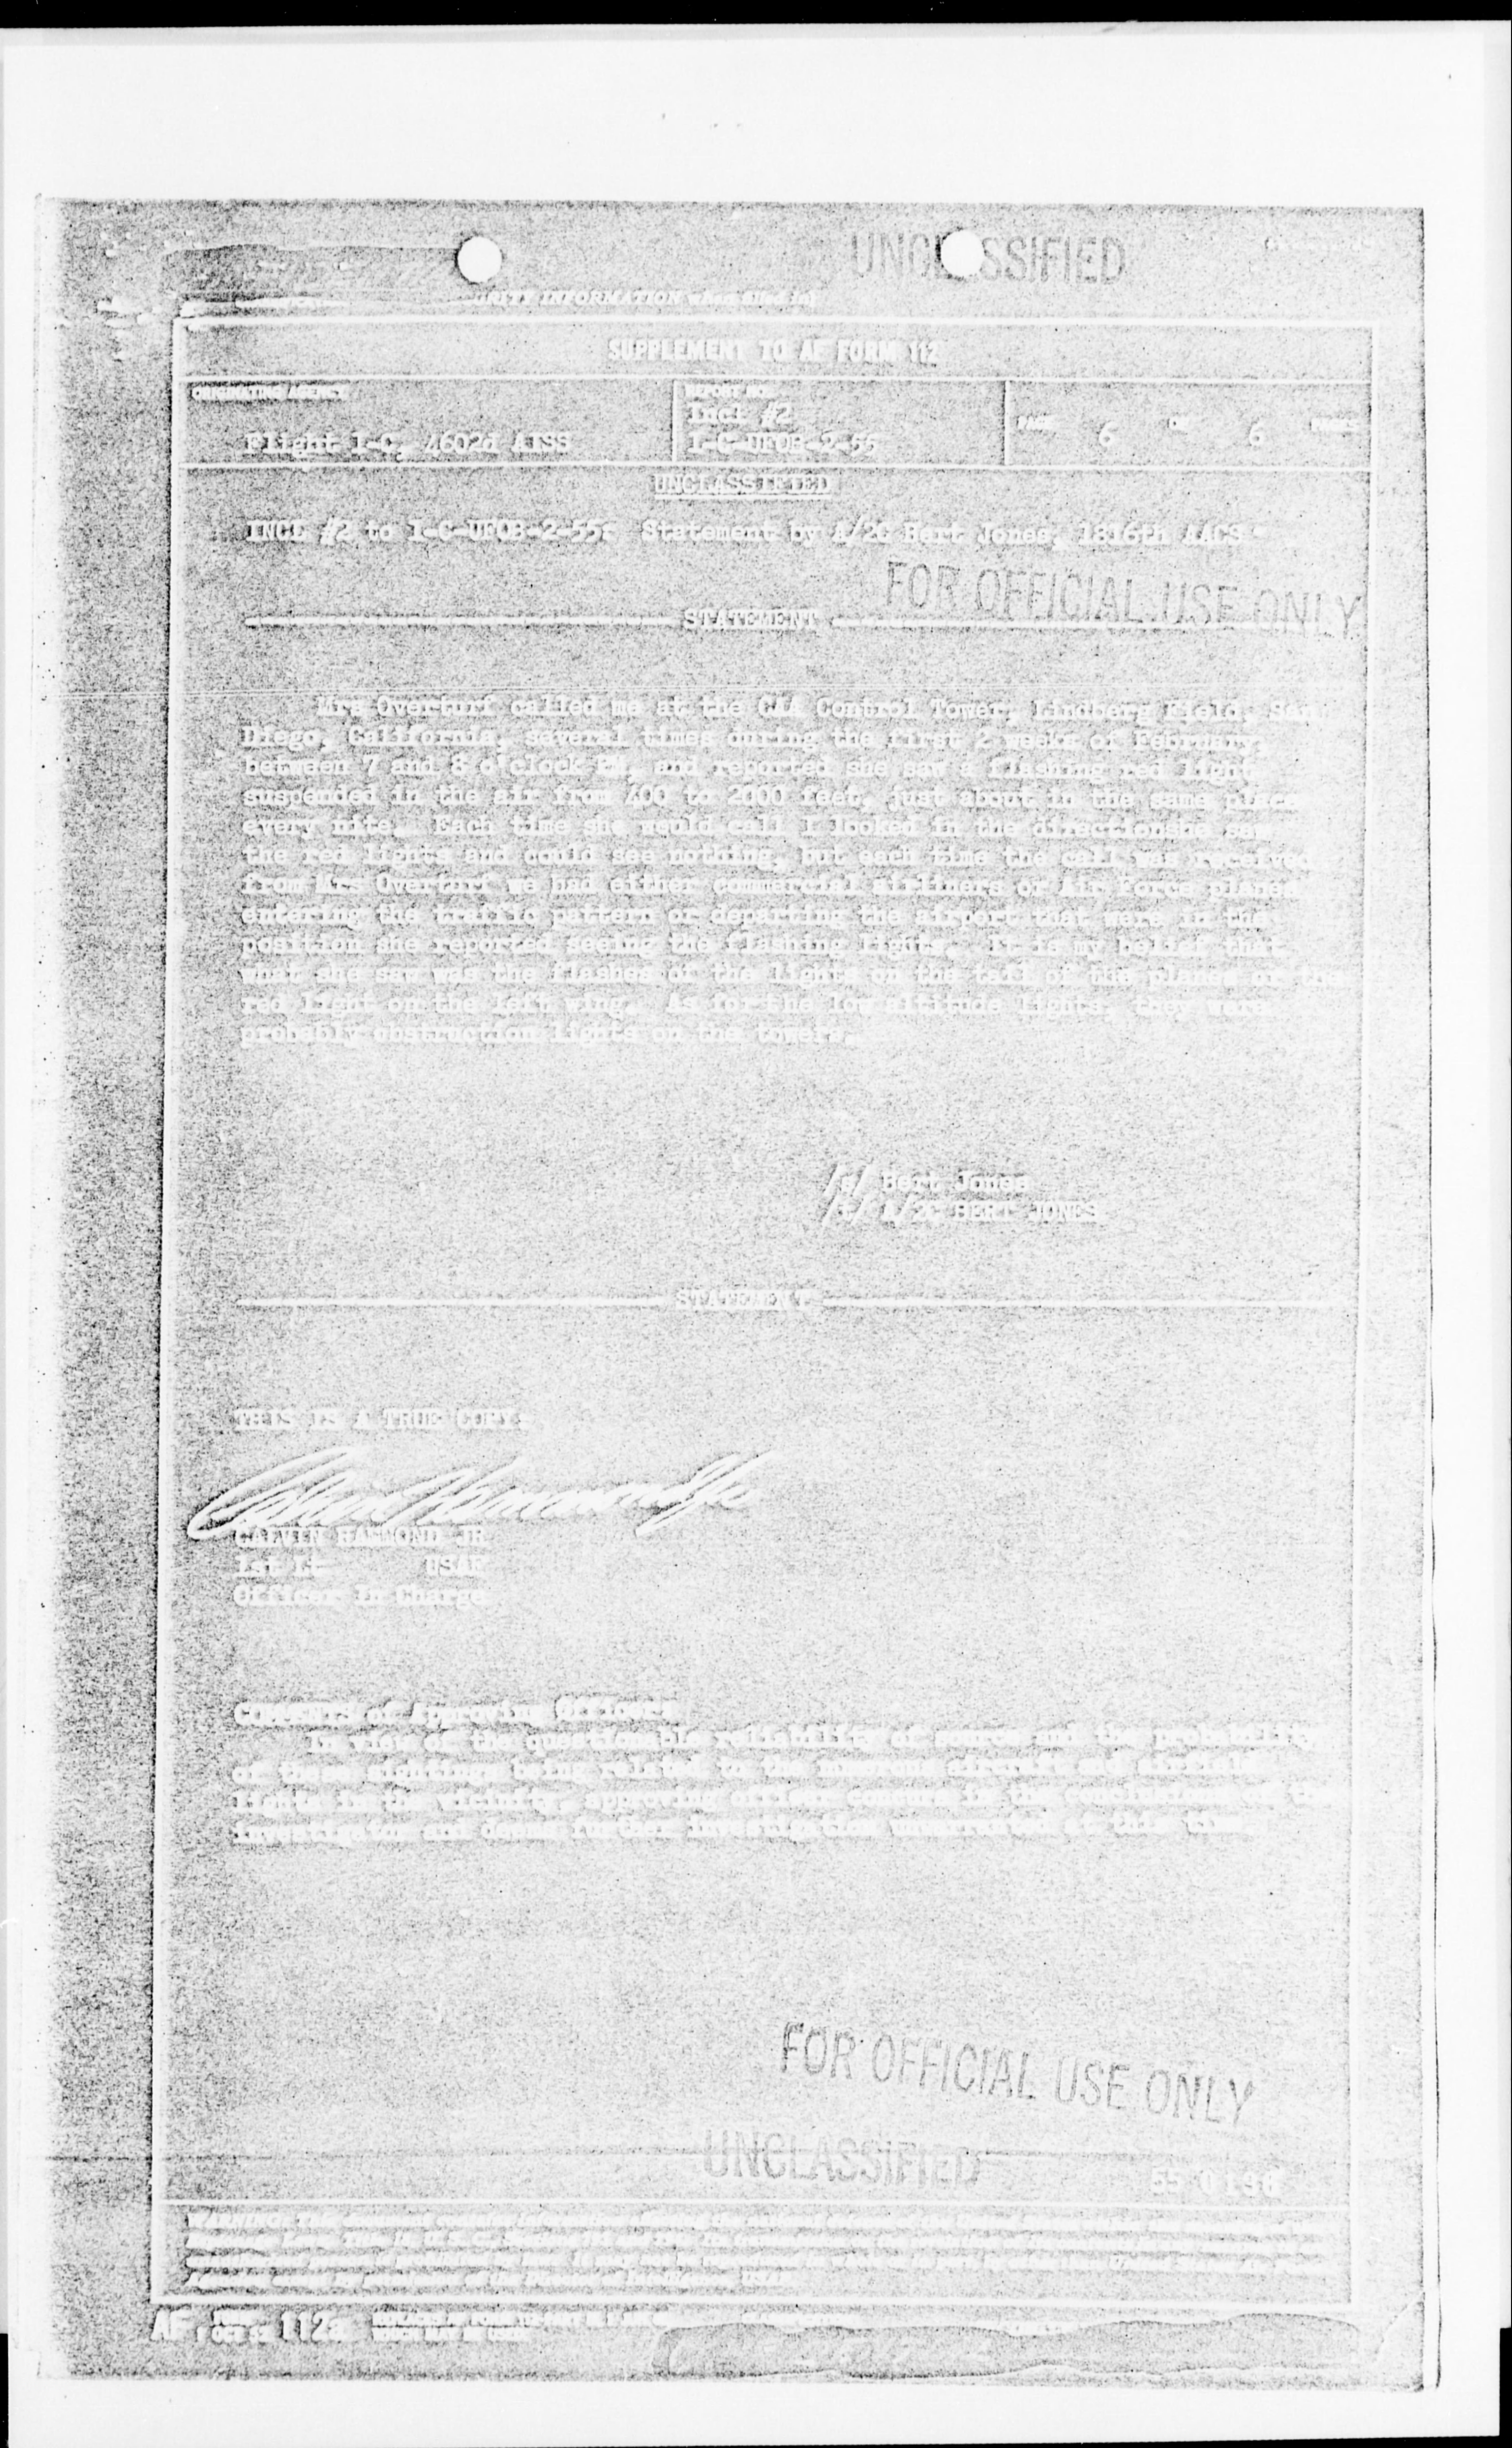 UNCLASSIFIED
URITY INFORMATION when filled in)
SUPPLEMENT TO AF FORM 112
ORIGINATING AGENCY
REPORT NO.
Incl #2
Flight 1-C, 4602d AISS
1-C-UFOB-2-55
PAGE 6 OF 6 PAGES
UNCLASSIFIED
INCL #2 to 1-C-UFOB-2-55: Statement by A/2C Bert Jones, 1816th AACS
FOR OFFICIAL USE ONLY
STATEMENT
Mrs Overturf called me at the CAA Control Tower, Lindberg Field, San
Diego, California, several times during the first 2 weeks of February,
between 7 and 8 o'clock PM, and reported she saw a flashing red light
suspended in the air from 400 to 2000 feet, just about in the same place
every nite. Each time she would call I looked in the directionshe saw
the red lights and could see nothing, but each time the call was received
from Mrs Overturf we had either commercial airliners or Air Force planes
entering the traffic pattern or departing the airport that were in the
position she reported seeing the flashing lights. It is my belief that
what she saw was the flashes of the light on the tail of the planes or the
red light on the left wing. As for the low altitude lights, they were
probably obstruction lights on the tower.
/s/ Bert Jones
/t/ A/2C BERT JONES
STATEMENT
THIS IS A TRUE COPY:
CALVIN HAMMOND JR
1st Lt USAF
Officer in Charge
COMMENTS of Approving Officer:
In view of the questionable reliability of source and the probability
of these sightings being related to the numerous aircraft and
lights in the vicinity, approving officer concurs in the conclusions of the
investigator and deems further investigation unwarranted at this time.
FOR OFFICIAL USE ONLY
UNCLASSIFIED
WARNING:
AF FORM 112a
1 OCT 52